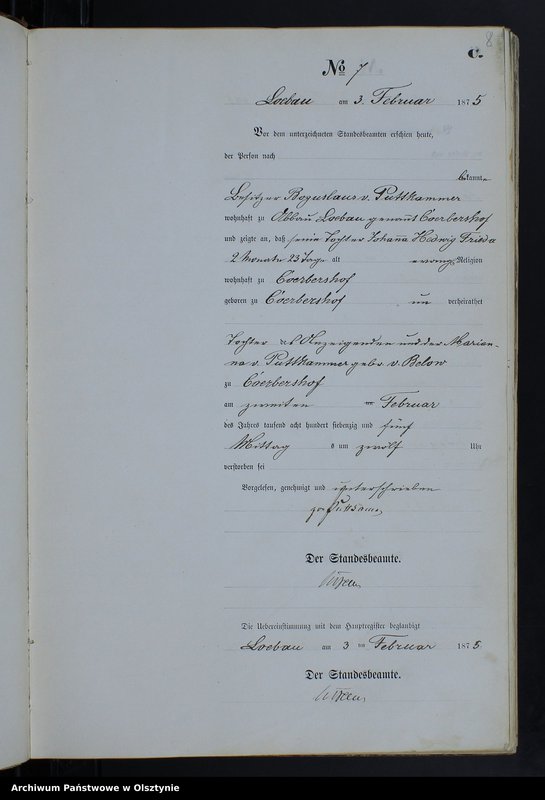 8
C.
No 7
Loebau am 3. Februar 1875
Vor dem unterzeichneten Standesbeamten erschien heute,
der Person nach
bekannt,
Besitzer Boguslaus v. Puttkammer
wohnhaft zu Abbau Loebau genannt Coerbershof
und zeigte an, daß seine Tochter Johanna Hedwig Frieda
2 Monate 23 Tage alt evang. Religion
wohnhaft zu Coerbershof
geboren zu Coerbershof un verheirathet
Tochter des Anzeigenden und der Marian-
na v. Puttkammer geb. v. Below
zu Coerbershof
am zweiten Februar
des Jahres tausend acht hundert siebenzig und fünf
Mittag s um zwölf Uhr
verstorben sei
Vorgelesen, genehmigt und unterschrieben
Der Standesbeamte.
Die Uebereinstimmung mit dem Hauptregister beglaubigt
Loebau am 3 ten Februar 1875
Der Standesbeamte.
Archiwum Państwowe w Olsztynie